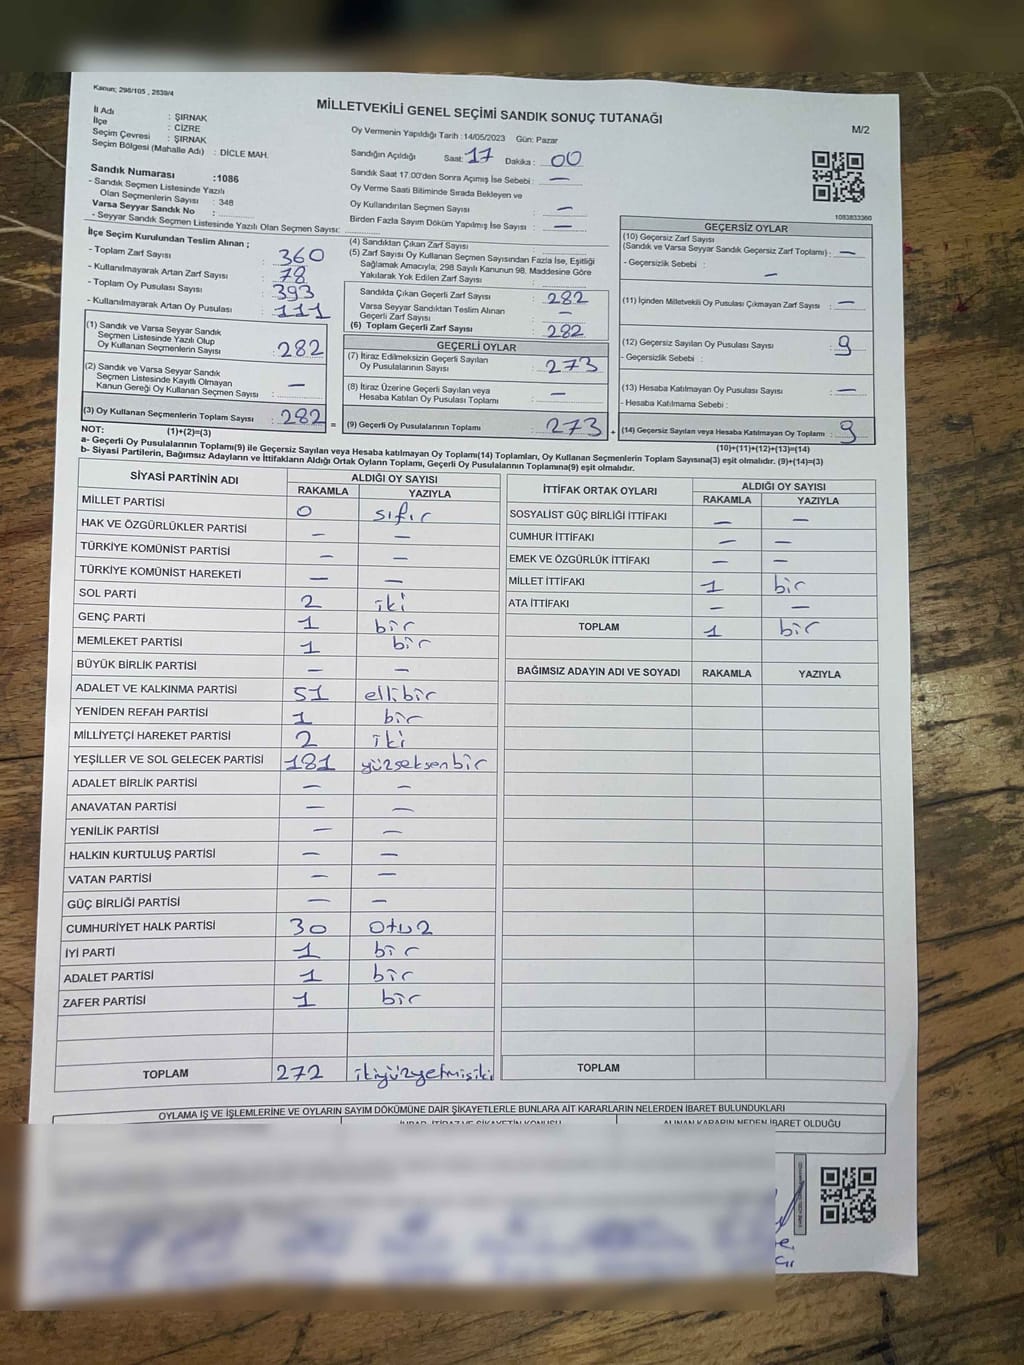 Kanun; 298/105 , 2839/4
MİLLETVEKİLİ GENEL SEÇİMİ SANDIK SONUÇ TUTANAĞI
M/2
İl Adı : ŞIRNAK
İlçe : CİZRE
Seçim Çevresi : ŞIRNAK
Seçim Bölgesi (Mahalle Adı) : DİCLE MAH.
Oy Vermenin Yapıldığı Tarih : 14/05/2023 Gün: Pazar
Sandığın Açıldığı Saat: 17 Dakika : 00
Sandık Saat 17.00'den Sonra Açımış İse Sebebi : —
Oy Verme Saati Bitiminde Sırada Bekleyen ve
Oy Kullandırılan Seçmen Sayısı : —
Birden Fazla Sayım Döküm Yapılmış İse Sayısı : —
1083833360
Sandık Numarası :1086
- Sandık Seçmen Listesinde Yazılı
Olan Seçmenlerin Sayısı : 348
Varsa Seyyar Sandık No :
- Seyyar Sandık Seçmen Listesinde Yazılı Olan Seçmen Sayısı:
İlçe Seçim Kurulundan Teslim Alınan ;
- Toplam Zarf Sayısı : 360
- Kullanılmayarak Artan Zarf Sayısı : 78
- Toplam Oy Pusulası Sayısı : 393
- Kullanılmayarak Artan Oy Pusulası : 111
(1) Sandık ve Varsa Seyyar Sandık
Seçmen Listesinde Yazılı Olup
Oy Kullanan Seçmenlerin Sayısı : 282
(2) Sandık ve Varsa Seyyar Sandık
Seçmen Listesinde Kayıtlı Olmayan
Kanun Gereği Oy Kullanan Seçmen Sayısı : —
(3) Oy Kullanan Seçmenlerin Toplam Sayısı : 282 =
(4) Sandıktan Çıkan Zarf Sayısı :
(5) Zarf Sayısı Oy Kullanan Seçmen Sayısından Fazla İse, Eşitliği
Sağlamak Amacıyla, 298 Sayılı Kanunun 98. Maddesine Göre
Yakılarak Yok Edilen Zarf Sayısı :
Sandıkta Çıkan Geçerli Zarf Sayısı : 282
Varsa Seyyar Sandıktan Teslim Alınan
Geçerli Zarf Sayısı : —
(6) Toplam Geçerli Zarf Sayısı : 282
GEÇERLİ OYLAR
(7) İtiraz Edilmeksizin Geçerli Sayılan
Oy Pusulalarının Sayısı : 273
(8) İtiraz Üzerine Geçerli Sayılan veya
Hesaba Katılan Oy Pusulası Toplamı : —
(9) Geçerli Oy Pusulalarının Toplamı : 273 +
GEÇERSİZ OYLAR
(10) Geçersiz Zarf Sayısı
(Sandık ve Varsa Seyyar Sandık Geçersiz Zarf Toplamı) : —
- Geçersizlik Sebebi : —
(11) İçinden Milletvekili Oy Pusulası Çıkmayan Zarf Sayısı : —
(12) Geçersiz Sayılan Oy Pusulası Sayısı : 9
- Geçersizlik Sebebi :
(13) Hesaba Katılmayan Oy Pusulası Sayısı : —
- Hesaba Katılmama Sebebi :
(14) Geçersiz Sayılan veya Hesaba Katılmayan Oy Toplamı : 9
NOT: (1)+(2)=(3) (10)+(11)+(12)+(13)=(14)
a- Geçerli Oy Pusulalarının Toplamı(9) ile Geçersiz Sayılan veya Hesaba katılmayan Oy Toplamı(14) Toplamları, Oy Kullanan Seçmenlerin Toplam Sayısına(3) eşit olmalıdır. (9)+(14)=(3)
b- Siyasi Partilerin, Bağımsız Adayların ve İttifakların Aldığı Ortak Oyların Toplamı, Geçerli Oy Pusulalarının Toplamına(9) eşit olmalıdır.
SİYASİ PARTİNİN ADI ALDIĞI OY SAYISI
RAKAMLA YAZIYLA
MİLLET PARTİSİ 0 sıfır
HAK VE ÖZGÜRLÜKLER PARTİSİ — —
TÜRKİYE KOMÜNİST PARTİSİ — —
TÜRKİYE KOMÜNİST HAREKETİ — —
SOL PARTİ 2 iki
GENÇ PARTİ 1 bir
MEMLEKET PARTİSİ 1 bir
BÜYÜK BİRLİK PARTİSİ — —
ADALET VE KALKINMA PARTİSİ 51 ellibir
YENİDEN REFAH PARTİSİ 1 bir
MİLLİYETÇİ HAREKET PARTİSİ 2 iki
YEŞİLLER VE SOL GELECEK PARTİSİ 181 yüzseksenbir
ADALET BİRLİK PARTİSİ — —
ANAVATAN PARTİSİ — —
YENİLİK PARTİSİ — —
HALKIN KURTULUŞ PARTİSİ — —
VATAN PARTİSİ — —
GÜÇ BİRLİĞİ PARTİSİ — —
CUMHURİYET HALK PARTİSİ 30 otuz
İYİ PARTİ 1 bir
ADALET PARTİSİ 1 bir
ZAFER PARTİSİ 1 bir
TOPLAM 272 ikiyüzyetmişiki
İTTİFAK ORTAK OYLARI ALDIĞI OY SAYISI
RAKAMLA YAZIYLA
SOSYALİST GÜÇ BİRLİĞİ İTTİFAKI — —
CUMHUR İTTİFAKI — —
EMEK VE ÖZGÜRLÜK İTTİFAKI — —
MİLLET İTTİFAKI 1 bir
ATA İTTİFAKI — —
TOPLAM 1 bir
BAĞIMSIZ ADAYIN ADI VE SOYADI RAKAMLA YAZIYLA
TOPLAM
OYLAMA İŞ VE İŞLEMLERİNE VE OYLARIN SAYIM DÖKÜMÜNE DAİR ŞİKAYETLERLE BUNLARA AİT KARARLARIN NELERDEN İBARET BULUNDUKLARI
ALINAN KARARIN NEDEN İBARET OLDUĞU